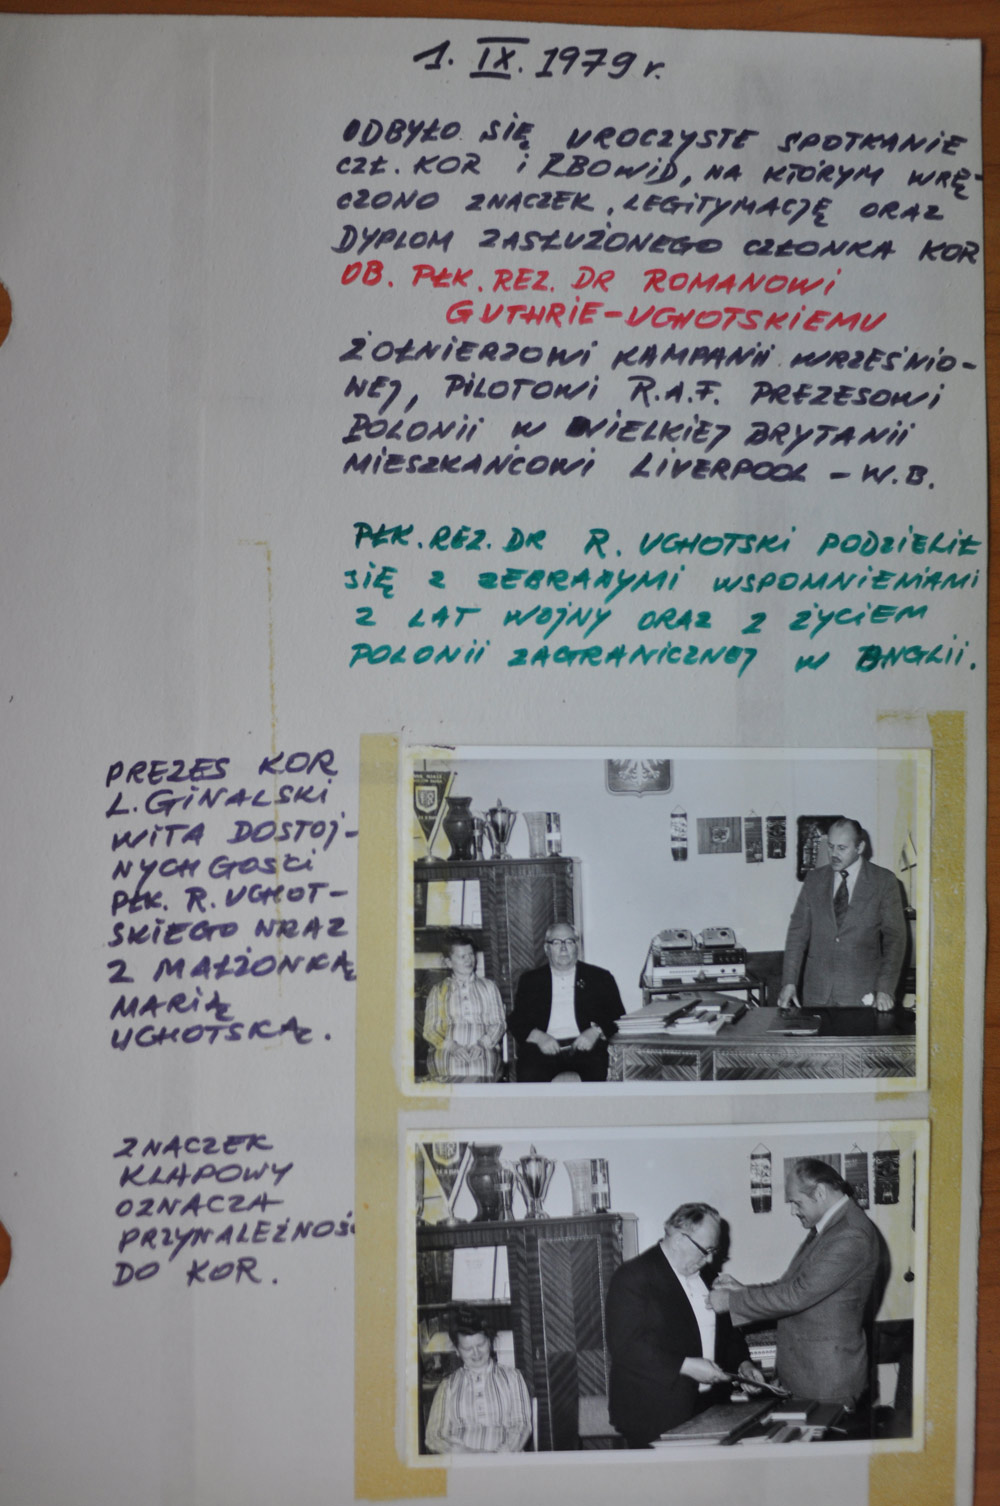 1. IX. 1979 r.
ODBYŁO SIĘ UROCZYSTE SPOTKANIE
CZŁ. KOR i ZBOWiD, NA KTÓRYM WRĘ-
CZONO ZNACZEK, LEGITYMACJĘ ORAZ
DYPLOM ZASŁUŻONEGO CZŁONKA KOR
OB. PŁK. REZ. DR ROMANOWi
GUTHRIE-UCHOTSKIEMU
ŻOŁNIERZOWi KAMPANii WRZEŚNiO-
NEJ, PiLOTOWi R.A.F. PREZESOWi
POLONii W WIELKIEJ BRYTANii
MIESZKAŃCOWi LIVERPOOL - W.B.
PŁK. REZ. DR R. UCHOTSKi PODZIELIŁ
SIĘ Z ZEBRANYMi WSPOMNIENIAMi
Z LAT WOJNY ORAZ Z ŻYCIEM
POLONii ZAGRANICZNEJ W ANGLii.
PREZES KOR
L. GiNALSKi
WITA DOSTOJ-
NYCH GOŚCi
PŁK. R. UCHOT-
SKIEGO WRAZ
Z MAŁŻONKĄ
MARiĄ
UCHOTSKĄ.
ZNACZEK
KLAPOWY
OZNACZA
PRZYNALEŻNOŚĆ
DO KOR.